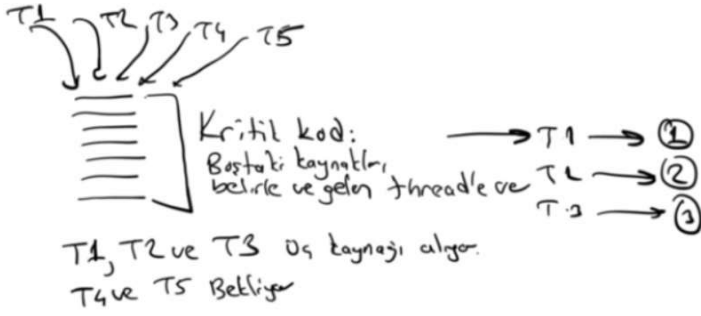 T1 T2 T3 T4 T5
Kritik kod:
Boştaki kaynakları
belirle ve gelen thread'e ver
T1 → 1
T2 → 2
T3 → 3
T1, T2 ve T3 üç kaynağı alıyor.
T4 ve T5 Bekliyor